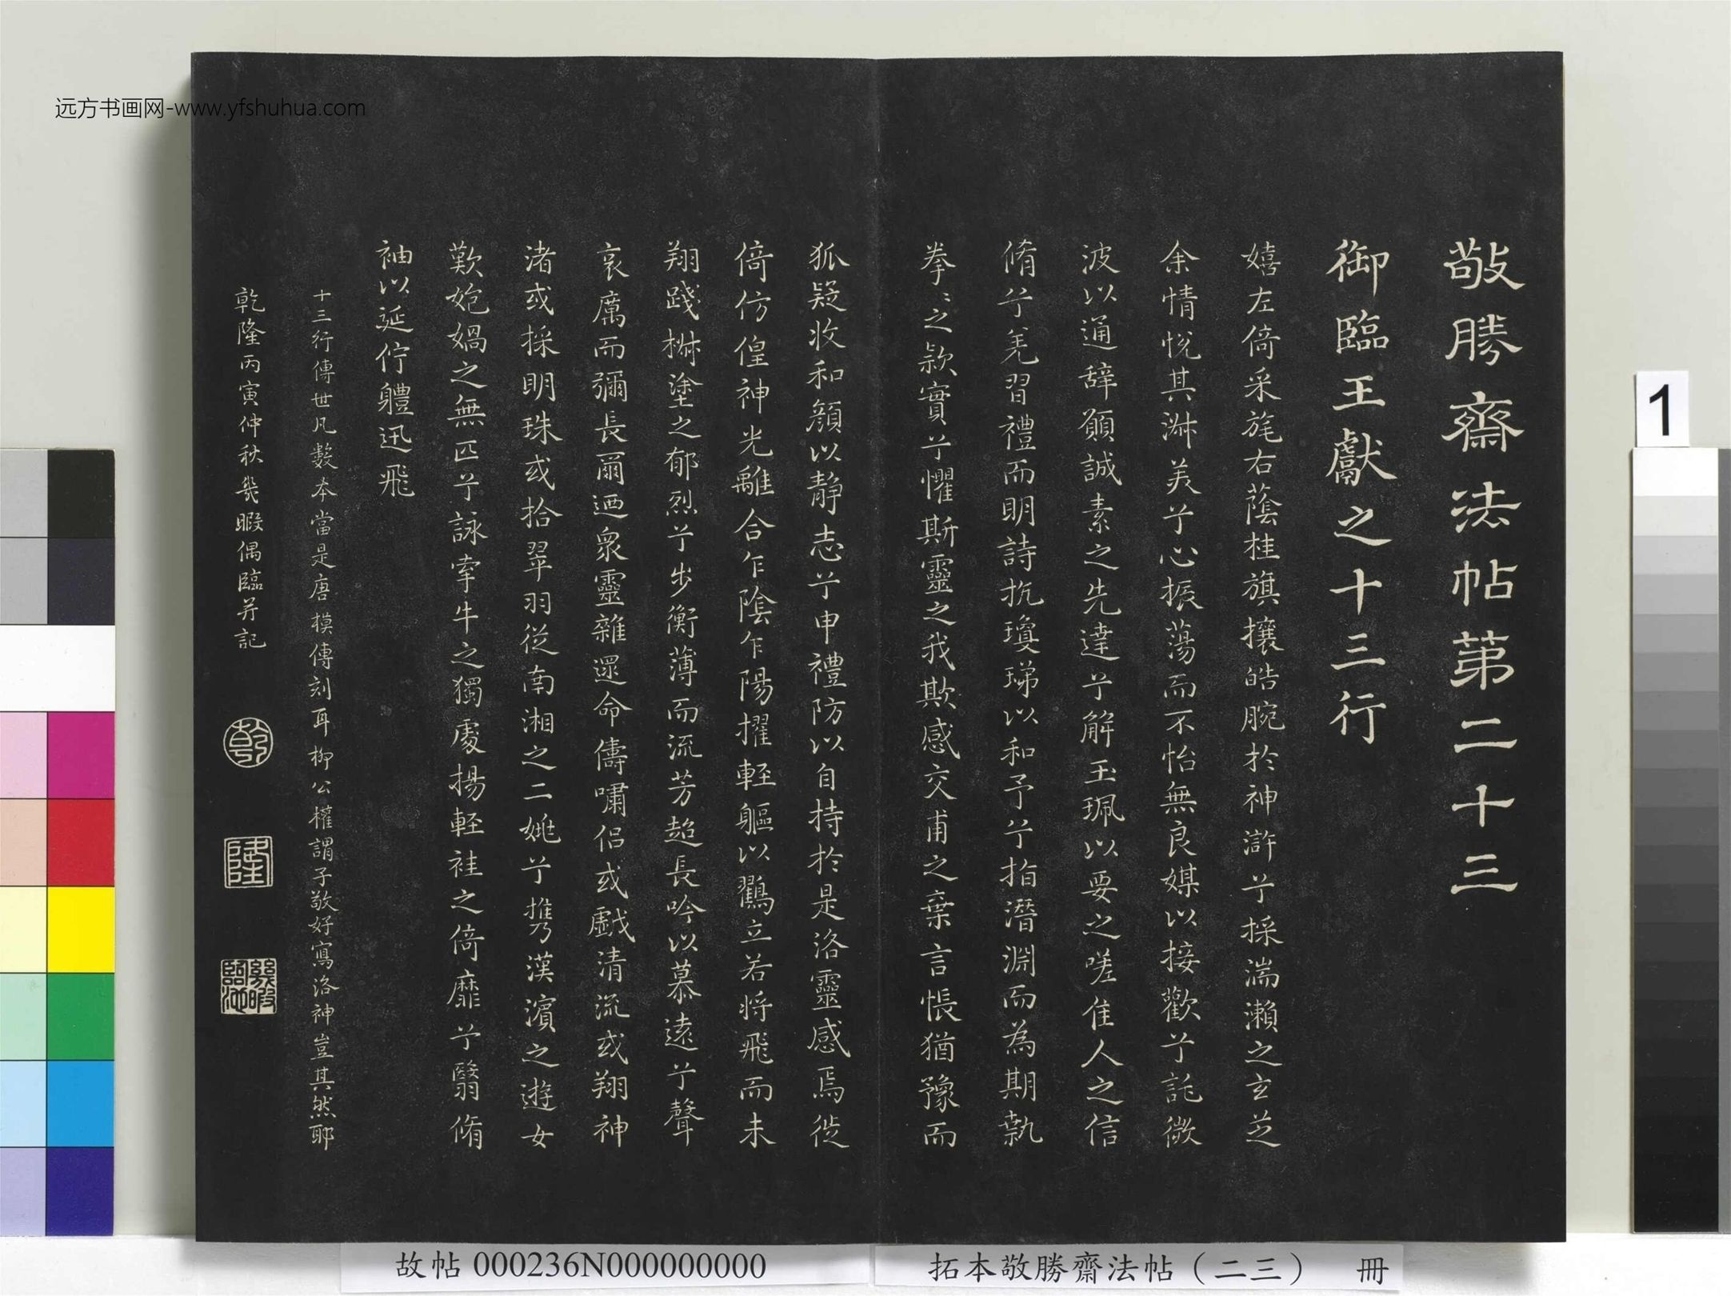 远方书画网-www.yfshuhua.com
敬勝齋法帖第二十三
御臨王獻之十三行
嬉左倚采旄右蔭桂旗攘皓腕於神滸兮採湍瀨之玄芝
余情悅其淋美兮心振蕩而不怡無良媒以接歡兮託微
波以通辭願誠素之先達兮解玉珮以要之嗟佳人之信
脩兮羌習禮而明詩抗瓊珶以和予兮指潛淵而為期執
拳〻之款實兮懼斯靈之我欺感交甫之棄言悵猶豫而
狐疑收和顏以靜志兮申禮防以自持於是洛靈感焉徙
倚仿偟神光離合乍陰乍陽擢輕軀以鸖立若將飛而未
翔踐椒塗之郁烈兮步衡薄而流芳超長吟以慕遠兮聲
哀厲而彌長爾迺眾靈雜遝命儔嘯侶或戲清流或翔神
渚或採明珠或拾翠羽從南湘之二姚兮攜漢濱之遊女
歎炰媧之無匹兮詠牽牛之獨處揚輕袿之倚靡兮翳脩
袖以延佇軆迅飛
十三行傳世凡數本當是唐摸傳刻耳柳公權謂子敬好寫洛神豈其然耶
乾隆丙寅仲秋幾暇偶臨并記
乾
隆
幾暇臨池
1
故帖 000236N000000000
拓本敬勝齋法帖（二三） 冊